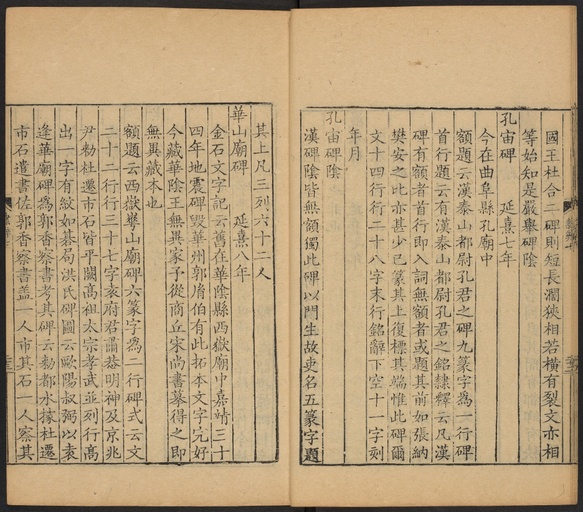 國王杜合二碑則短長濶狹相若橫有裂文亦相
等始知是嚴舉碑陰
孔宙碑　延熹七年
今在曲阜縣孔廟中
額題云漢泰山都尉孔君之碑九篆字爲一行碑
首行題云有漢泰山都尉孔君之銘隸釋云凡漢
碑有額者首行即入詞無額者或題其前如張納
樊安之比亦甚少已篆其上復標其端惟此碑爾
文十四行行二十八字末行銘辭下空十一字刻
年月
孔宙碑陰
漢碑陰皆無額獨此碑以門生故吏名五篆字題
其上凡三列六十二人
華山廟碑　延熹八年
金石文字記云舊在華陰縣西嶽廟中嘉靖三十
四年地震碑毀華州郭胤伯有此拓本文字完好
今藏華陰王無異家予從商丘宋尚書摹得之即
無異藏本也
額題云西嶽華山廟碑六篆字爲二行碑式云文
二十二行行三十七字袁府君諱恭明神及京兆
尹勑杜遷市石皆平闕高祖太宗孝武並列行高
出一字有紋如碁局洪氏碑圖云歐陽叔弼以袁
逢華廟碑爲郭香察書考其碑云勑都水掾杜遷
市石遣書佐郭香察書蓋一人市其石一人察其